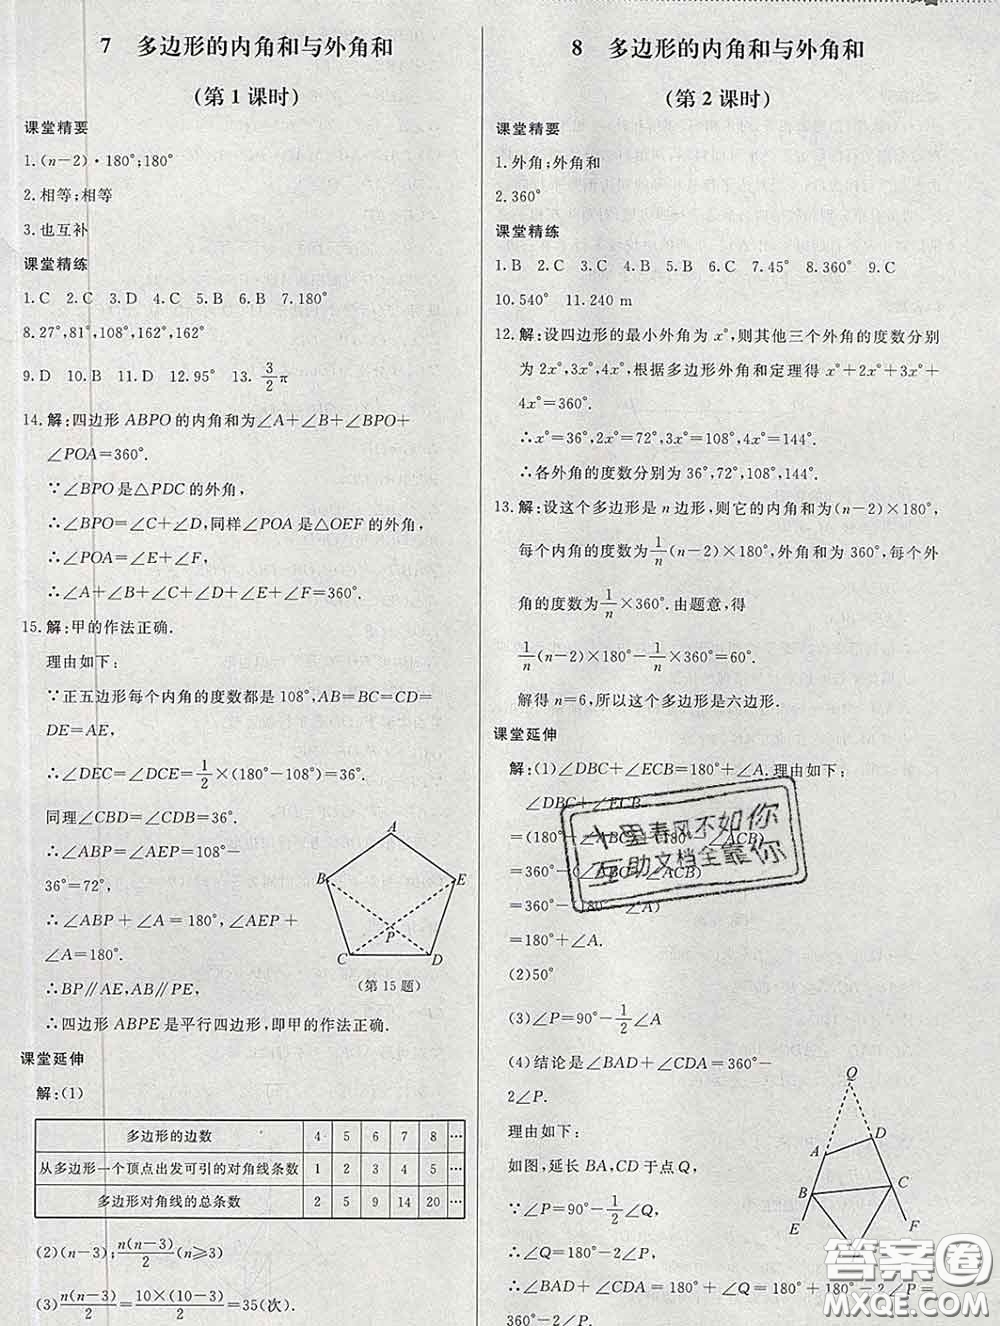 7　多边形的内角和与外角和
(第1课时)
课堂精要
1.(n-2)·180°;180°
2.相等;相等
3.也互补
课堂精练
1.C　2.C　3.D　4.C　5.B　6.B　7.180°
8.27°,81°,108°,162°,162°
9.D　10.B　11.D　12.95°　13.3/2π
14.解:四边形ABPO的内角和为∠A+∠B+∠BPO+
∠POA=360°.
∵∠BPO是△PDC的外角,
∴∠BPO=∠C+∠D,同样∠POA是△OEF的外角,
∴∠POA=∠E+∠F,
∴∠A+∠B+∠C+∠D+∠E+∠F=360°.
15.解:甲的作法正确.
理由如下:
∵正五边形每个内角的度数都是108°,AB=BC=CD=
DE=AE,
∴∠DEC=∠DCE=1/2×(180°-108°)=36°.
同理∠CBD=∠CDB=36°.
∴∠ABP=∠AEP=108°-
36°=72°,
∴∠ABP+∠A=180°,∠AEP+
∠A=180°.
∴BP∥AE,AB∥PE,
∴四边形ABPE是平行四边形,即甲的作法正确.
A
B
E
P
C
D
(第15题)
课堂延伸
解:(1)
多边形的边数 4 5 6 7 8 …
从多边形一个顶点出发可引的对角线条数 1 2 3 4 5 …
多边形对角线的总条数 2 5 9 14 20 …
(2)(n-3);n(n-3)/2(n≥3)
(3)n(n-3)/2=10×(10-3)/2=35(次).
8　多边形的内角和与外角和
(第2课时)
课堂精要
1.外角;外角和
2.360°
课堂精练
1.B　2.C　3.C　4.B　5.B　6.C　7.45°　8.360°　9.C
10.540°　11.240 m
12.解:设四边形的最小外角为x°,则其他三个外角的度数分别
为2x°,3x°,4x°,根据多边形外角和定理得x°+2x°+3x°+
4x°=360°.
∴x°=36°,2x°=72°,3x°=108°,4x°=144°.
∴各外角的度数分别为36°,72°,108°,144°.
13.解:设这个多边形是n边形,则它的内角和为(n-2)×180°,
每个内角的度数为1/n(n-2)×180°,外角和为360°,每个外
角的度数为1/n×360°.由题意,得
1/n(n-2)×180°-1/n×360°=60°.
解得n=6,所以这个多边形是六边形.
课堂延伸
解:(1)∠DBC+∠ECB=180°+∠A.理由如下:
∠DBC+∠ECB
=(180°-∠ABC)+(180°-∠ACB)
=360°-(∠ABC+∠ACB)
=360°-(180°-∠A)
=180°+∠A.
(2)50°
(3)∠P=90°-1/2∠A
(4)结论是∠BAD+∠CDA=360°-
2∠P.
理由如下:
如图,延长BA,CD于点Q,
∵∠P=90°-1/2∠Q,
∴∠Q=180°-2∠P.
∴∠BAD+∠CDA=180°+∠Q=180°+180°-
Q
A
D
B
C
E
F
十里春风不如你
互助文档全靠你
答案圈
MXQE.COM